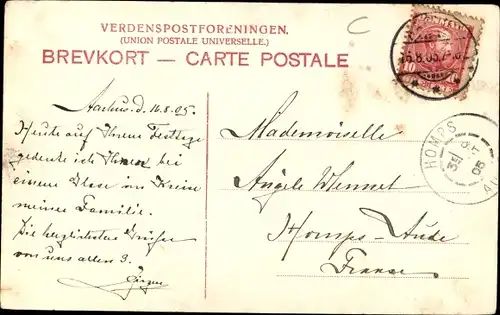 VERDENSPOSTFORENINGEN.
(UNION POSTALE UNIVERSELLE.)
BREVKORT — CARTE POSTALE
C
10
16.8.05
HOMPS
AOUT
05
Aarhus d. 16.8.05.
Heute auf Ihrem Festtage
gedenke ich Ihrer bei
einem Glase im Kreise
meiner Familie.
Die herzlichsten Grüsse
von uns allen 3.
Mademoiselle
Angèle
Homps-Aude
France